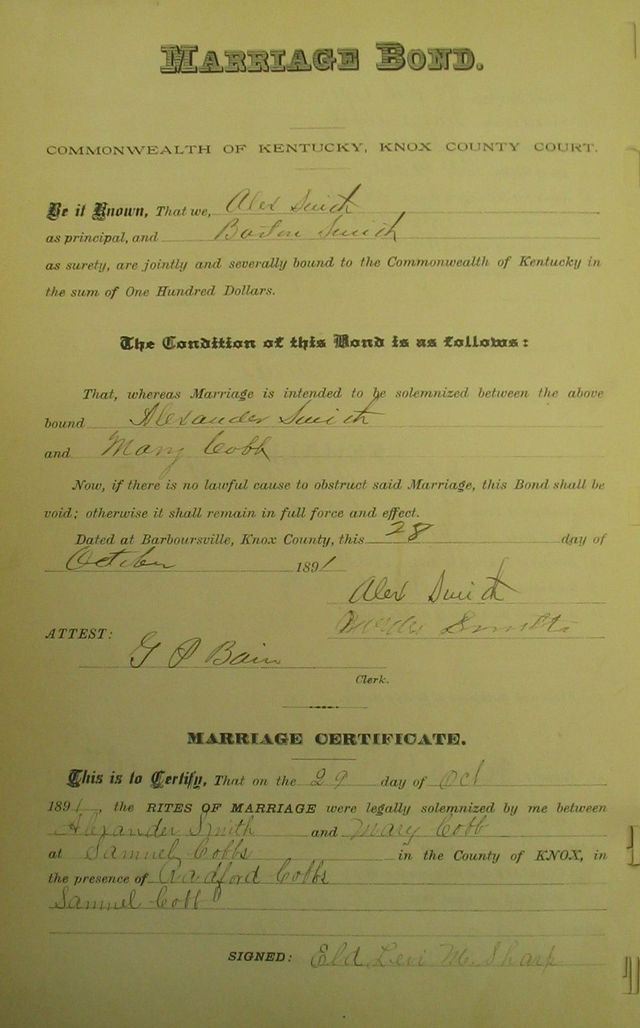 MARRIAGE BOND.
COMMONWEALTH OF KENTUCKY, KNOX COUNTY COURT.
Be it Known, That we, Alex Smith
as principal, and Boston Smith
as surety, are jointly and severally bound to the Commonwealth of Kentucky in
the sum of One Hundred Dollars.
The Condition of this Bond is as follows:
That, whereas Marriage is intended to be solemnized between the above
bound Alexander Smith
and Mary Cobb
Now, if there is no lawful cause to obstruct said Marriage, this Bond shall be
void; otherwise it shall remain in full force and effect.
Dated at Barboursville, Knox County, this 28 day of
October 1891
Alex Smith
Smith
ATTEST:
G P Bain
Clerk.
MARRIAGE CERTIFICATE.
This is to Certify, That on the 29 day of Oct
1891, the RITES OF MARRIAGE were legally solemnized by me between
Alexander Smith and Mary Cobb
at Samuel Cobbs in the County of KNOX, in
the presence of Radford Cobbs
Samuel Cobb
SIGNED: Eld Levi M. Sharp